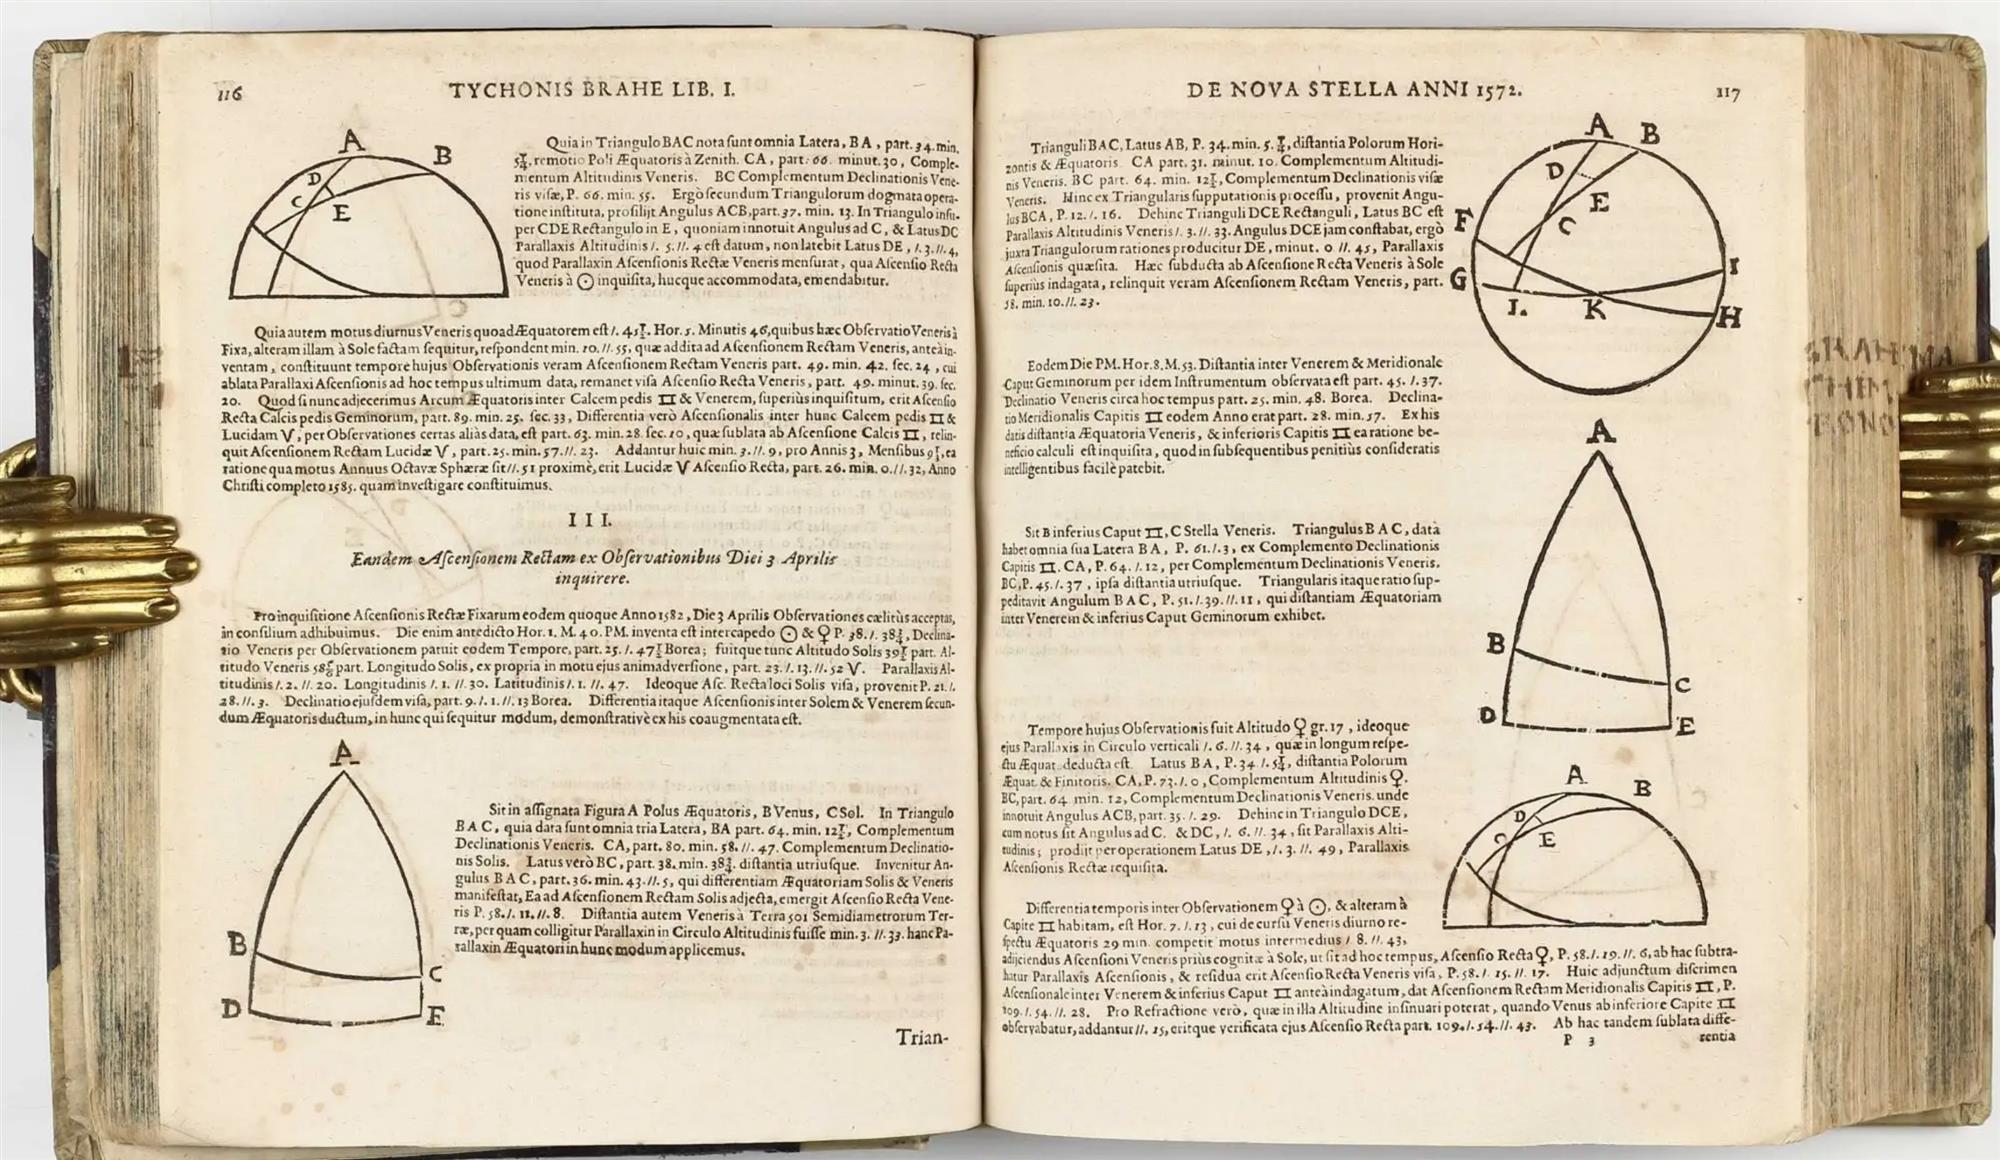 116 TYCHONIS BRAHE LIB. I.
A
B
D
C
E
Quia in Triangulo BAC nota ſunt omnia Latera, BA, part. 34. min.
5¼, remotio Poli Æquatoris à Zenith. CA, part. 66. minut. 30, Comple-
mentum Altitudinis Veneris. BC Complementum Declinationis Vene-
ris viſæ, P. 66. min. 55. Ergò ſecundum Triangulorum dogmata opera-
tione inſtituta, proſilijt Angulus ACB, part. 37. min. 13. In Triangulo inſu-
per CDE Rectangulo in E, quoniam innotuit Angulus ad C, & Latus DC
Parallaxis Altitudinis /. 5. //. 4 eſt datum, non latebit Latus DE, /. 3. //. 4,
quod Parallaxin Aſcenſionis Rectæ Veneris menſurat, qua Aſcenſio Recta
Veneris à ☉ inquiſita, hucque accommodata, emendabitur.
Quia autem motus diurnus Veneris quoad Æquatorem eſt /. 45½. Hor. 5. Minutis 46, quibus hæc Obſervatio Veneris à
Fixa, alteram illam à Sole factam ſequitur, reſpondent min. 10. //. 55, quæ addita ad Aſcenſionem Rectam Veneris, anteà in-
ventam, conſtituunt tempore hujus Obſervationis veram Aſcenſionem Rectam Veneris part. 49. min. 42. ſec. 24, cui
ablata Parallaxi Aſcenſionis ad hoc tempus ultimum data, remanet viſa Aſcenſio Recta Veneris, part. 49. minut. 39. ſec.
20. Quod ſi nunc adjecerimus Arcum Æquatoris inter Calcem pedis ♊ & Venerem, ſuperiùs inquiſitum, erit Aſcenſio
Recta Calcis pedis Geminorum, part. 89. min. 25. ſec. 33, Differentia verò Aſcenſionalis inter hunc Calcem pedis ♊ &
Lucidam ♈, per Obſervationes certas aliàs data, eſt part. 63. min. 28. ſec. 10, quæ ſublata ab Aſcenſione Calcis ♊, relin-
quit Aſcenſionem Rectam Lucidæ ♈, part. 25. min. 57. //. 23. Addantur huic min. 3. //. 9, pro Annis 3, Menſibus 9½, ea
ratione qua motus Annuus Octavæ Sphæræ ſit //. 51 proximè, erit Lucidæ ♈ Aſcenſio Recta, part. 26. min. 0. //. 32, Anno
Chriſti completo 1585. quam inveſtigare conſtituimus.
III.
Eandem Aſcenſionem Rectam ex Obſervationibus Diei 3 Aprilis
inquirere.
Pro inquiſitione Aſcenſionis Rectæ Fixarum eodem quoque Anno 1582, Die 3 Aprilis Obſervationes cælitùs acceptas,
in conſilium adhibuimus. Die enim antedicto Hor. 1. M. 40. PM. inventa eſt intercapedo ☉ & ♀ P. 38. /. 38¾, Declina-
tio Veneris per Obſervationem patuit eodem Tempore, part. 25. /. 47½ Borea; fuitque tunc Altitudo Solis 39½ part. Al-
titudo Veneris 58⅚ part. Longitudo Solis, ex propria in motu ejus animadverſione, part. 23. /. 13. //. 52 ♈. Parallaxis Al-
titudinis /. 2. //. 20. Longitudinis /. 1. //. 30. Latitudinis /. 1. //. 47. Ideoque Aſc. Recta loci Solis viſa, provenit P. 21. /.
28. //. 3. Declinatio ejuſdem viſa, part. 9. /. 1. //. 13 Borea. Differentia itaque Aſcenſionis inter Solem & Venerem ſecun-
dum Æquatoris ductum, in hunc qui ſequitur modum, demonſtrativè ex his coaugmentata eſt.
A
B
C
D
E
Sit in aſſignata Figura A Polus Æquatoris, B Venus, C Sol. In Triangulo
BAC, quia data ſunt omnia tria Latera, BA part. 64. min. 12½, Complementum
Declinationis Veneris. CA, part. 80. min. 58. //. 47. Complementum Declinatio-
nis Solis. Latus verò BC, part. 38. min. 38¾. diſtantia utriuſque. Invenitur An-
gulus BAC, part. 36. min. 43. //. 5, qui differentiam Æquatoriam Solis & Veneris
manifeſtat, Ea ad Aſcenſionem Rectam Solis adjecta, emergit Aſcenſio Recta Vene-
ris P. 58. /. 11. //. 8. Diſtantia autem Veneris à Terra 501 Semidiametrorum Ter-
ræ, per quam colligitur Parallaxin in Circulo Altitudinis fuiſſe min. 3. //. 33. hanc Pa-
rallaxin Æquatori in hunc modum applicemus.
Trian-
DE NOVA STELLA ANNI 1572. 117
Trianguli BAC, Latus AB, P. 34. min. 5. ¼, diſtantia Polorum Hori-
zontis & Æquatoris. CA part. 31. minut. 10. Complementum Altitudi-
nis Veneris. BC part. 64. min. 12½, Complementum Declinationis viſæ
Veneris. Hinc ex Triangularis ſupputationis proceſſu, provenit Angu-
lus BCA, P. 12. /. 16. Dehinc Trianguli DCE Rectanguli, Latus BC eſt
Parallaxis Altitudinis Veneris /. 3. //. 33. Angulus DCE jam conſtabat, ergò
juxta Triangulorum rationes producitur DE, minut. 0 //. 45, Parallaxis
Aſcenſionis quæſita. Hæc ſubducta ab Aſcenſione Recta Veneris à Sole
ſuperiùs indagata, relinquit veram Aſcenſionem Rectam Veneris, part.
58. min. 10. //. 23.
A
B
D
E
C
F
G
I
I.
K
H
Eodem Die PM. Hor. 8. M. 53. Diſtantia inter Venerem & Meridionale
Caput Geminorum per idem Inſtrumentum obſervata eſt part. 45. /. 37.
Declinatio Veneris circa hoc tempus part. 25. min. 48. Borea. Declina-
tio Meridionalis Capitis ♊ eodem Anno erat part. 28. min. 57. Ex his
datis diſtantia Æquatoria Veneris, & inferioris Capitis ♊ ea ratione be-
neficio calculi eſt inquiſita, quod in ſubſequentibus penitiùs conſideratis
intelligentibus facilè patebit.
Sit B inferius Caput ♊, C Stella Veneris. Triangulus BAC, data
habet omnia ſua Latera BA, P. 61. /. 3, ex Complemento Declinationis
Capitis ♊. CA, P. 64. /. 12, per Complementum Declinationis Veneris.
BC, P. 45. /. 37, ipſa diſtantia utriuſque. Triangularis itaque ratio ſup-
peditavit Angulum BAC, P. 51. /. 39. //. 11, qui diſtantiam Æquatoriam
inter Venerem & inferius Caput Geminorum exhibet.
A
B
C
D
E
Tempore hujus Obſervationis fuit Altitudo ♀ gr. 17, ideoque
ejus Parallaxis in Circulo verticali /. 6. //. 34, quæ in longum reſpe-
ctu Æquat. deducta eſt. Latus BA, P. 34 /. 5¼, diſtantia Polorum
Æquat. & Finitoris. CA, P. 73. /. 0, Complementum Altitudinis ♀.
BC, part. 64 min. 12, Complementum Declinationis Veneris. unde
innotuit Angulus ACB, part. 35. /. 29. Dehinc in Triangulo DCE,
cum notus ſit Angulus ad C. & DC, /. 6. //. 34, ſit Parallaxis Alti-
tudinis; prodijt per operationem Latus DE, /. 3. //. 49, Parallaxis
Aſcenſionis Rectæ requiſita.
A
B
D
C
E
Differentia temporis inter Obſervationem ♀ à ☉, & alteram à
Capite ♊ habitam, eſt Hor. 7. /. 13, cui de curſu Veneris diurno re-
ſpectu Æquatoris 29 min. competit motus intermedius / 8. //. 43,
adijciendus Aſcenſioni Veneris priùs cognitæ à Sole, ut ſit ad hoc tempus, Aſcenſio Recta ♀, P. 58. /. 19. //. 6, ab hac ſubtra-
hatur Parallaxis Aſcenſionis, & reſidua erit Aſcenſio Recta Veneris viſa, P. 58. /. 15. //. 17. Huic adjunctum diſcrimen
Aſcenſionale inter Venerem & inferius Caput ♊ anteà indagatum, dat Aſcenſionem Rectam Meridionalis Capitis ♊, P.
109. /. 54. //. 28. Pro Refractione verò, quæ in illa Altitudine inſinuari poterat, quando Venus ab inferiore Capite ♊
obſervabatur, addantur //. 15, eritque verificata ejus Aſcenſio Recta part. 109. /. 54. //. 43. Ab hac tandem ſublata diffe-
P 3 rentia